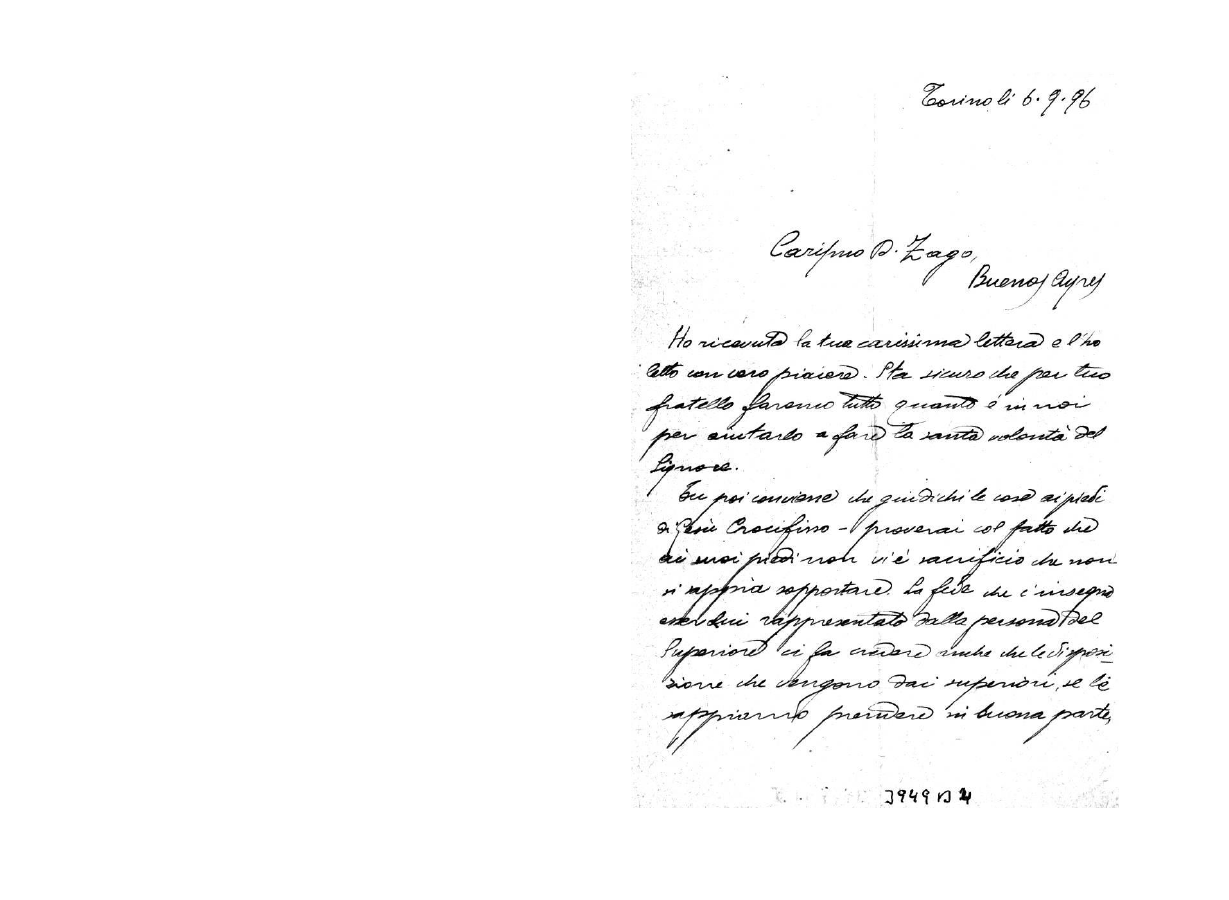 Torino li 6.9.96
Carissimo D. Zago,
Buenos Ayres
Ho ricevuto la tua carissima lettera e l'ho
letto con vero piacere. Sta sicuro che per tuo
fratello faremo tutto quanto è in noi
per aiutarlo a fare la santa volontà del
Signore.
Tu poi conviene che giudichi le cose ai piedi
di Gesù Crocifisso - proverai col fatto che
ai suoi piedi non vi è sacrificio che non
si sappia sopportare. La fede che c'insegna
esser Lui rappresentato dalla persona del
Superiore ci fa credere anche che le disposi-
zione che vengono dai superiori, se le
sappiamo prendere in buona parte,
3949 B 4